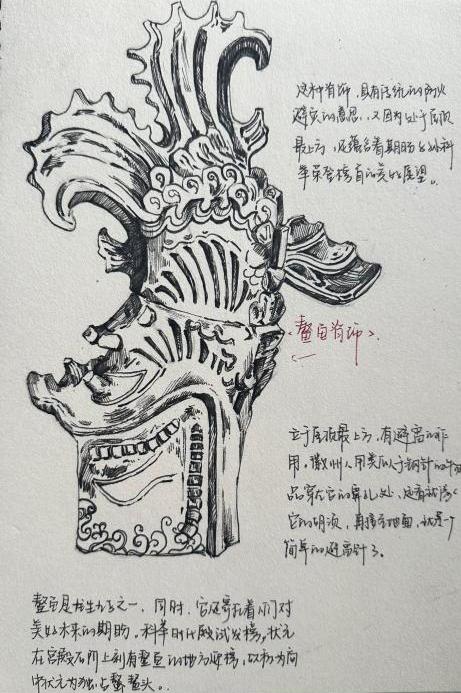 这种脊饰,具有传统的防火
避灾的意思,又因为处于屋顶
最上方,还蕴含着期盼子孙科
举荣登榜首的美好愿望。
<鳌鱼脊饰>
立于屋顶最上方,有避雷的作
用,徽州人用类似于铜针的
品穿在它的鼻孔处,
它的胡须,再接至地面,就是一个
简单的避雷针了。
鳌鱼是龙生九子之一,同时,它还寄托着人们对
美好未来的期盼,科举时代殿试发榜,状元
在宫殿石阶上刻有鳌鱼的地方迎榜,故称为高
中状元为独占鳌头。